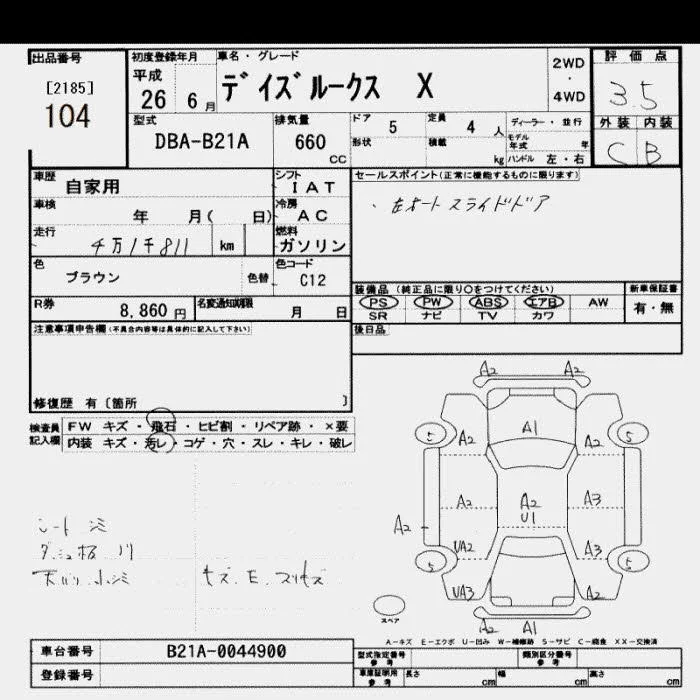 出品番号
[2185]
104
初度登録年月
平成
26 6 月
車名・グレード
デイズルークス X
2WD
・
4WD
評価点
3.5
外装 内装
C B
型式
DBA-B21A
排気量
660
CC
ドア 5
定員 4 人
形状
積載 kg
ディーラー・並行
モデル年式 年
ハンドル 左・右
車歴 自家用
シフト
IAT
車検 年 月( 日)
冷房
AC
走行 4万1千811 km
燃料
ガソリン
色 ブラウン 色替
色コード
C12
R券 8,860 円
名変通知期限 月 日
セールスポイント(正常に機能するものに限ります)
・左オート スライドドア
装備品 (純正品に限り〇をつけてください)
新車保証書
PS PW ABS エアB AW
有・無
SR ナビ TV カワ
後日品
注意事項申告欄(不具合内容等は具体的に記入して下さい)
修復歴 有〔箇所 〕
検査員記入欄
FW キズ・飛石・ヒビ割・リペア跡・×要
内装 キズ・汚レ・コゲ・穴・スレ・キレ・破レ
シート シミ
キズ、E、スリキズ
A2 A2
A1
5 5
A2 A2
A2 A2 A3
U1
A2
UA2 A3
5 5
UA3 A2
A2 A1
スペア
A-キズ E-エクボ U-凹み W-補修跡 S-サビ C-腐食 XX-交換済
車台番号 B21A-0044900
登録番号
型式指定番号 参考
類別区分番号 参考
車庫証明用 参考 長さ cm 幅 cm 高さ cm